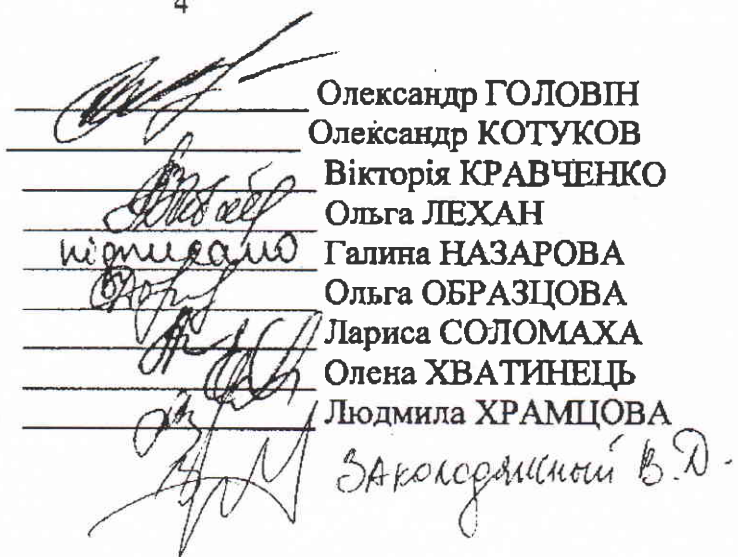 4
Олександр ГОЛОВІН
Олександр КОТУКОВ
Вікторія КРАВЧЕНКО
Ольга ЛЕХАН
підписано Галина НАЗАРОВА
Ольга ОБРАЗЦОВА
Лариса СОЛОМАХА
Олена ХВАТИНЕЦЬ
Людмила ХРАМЦОВА
В.Д.